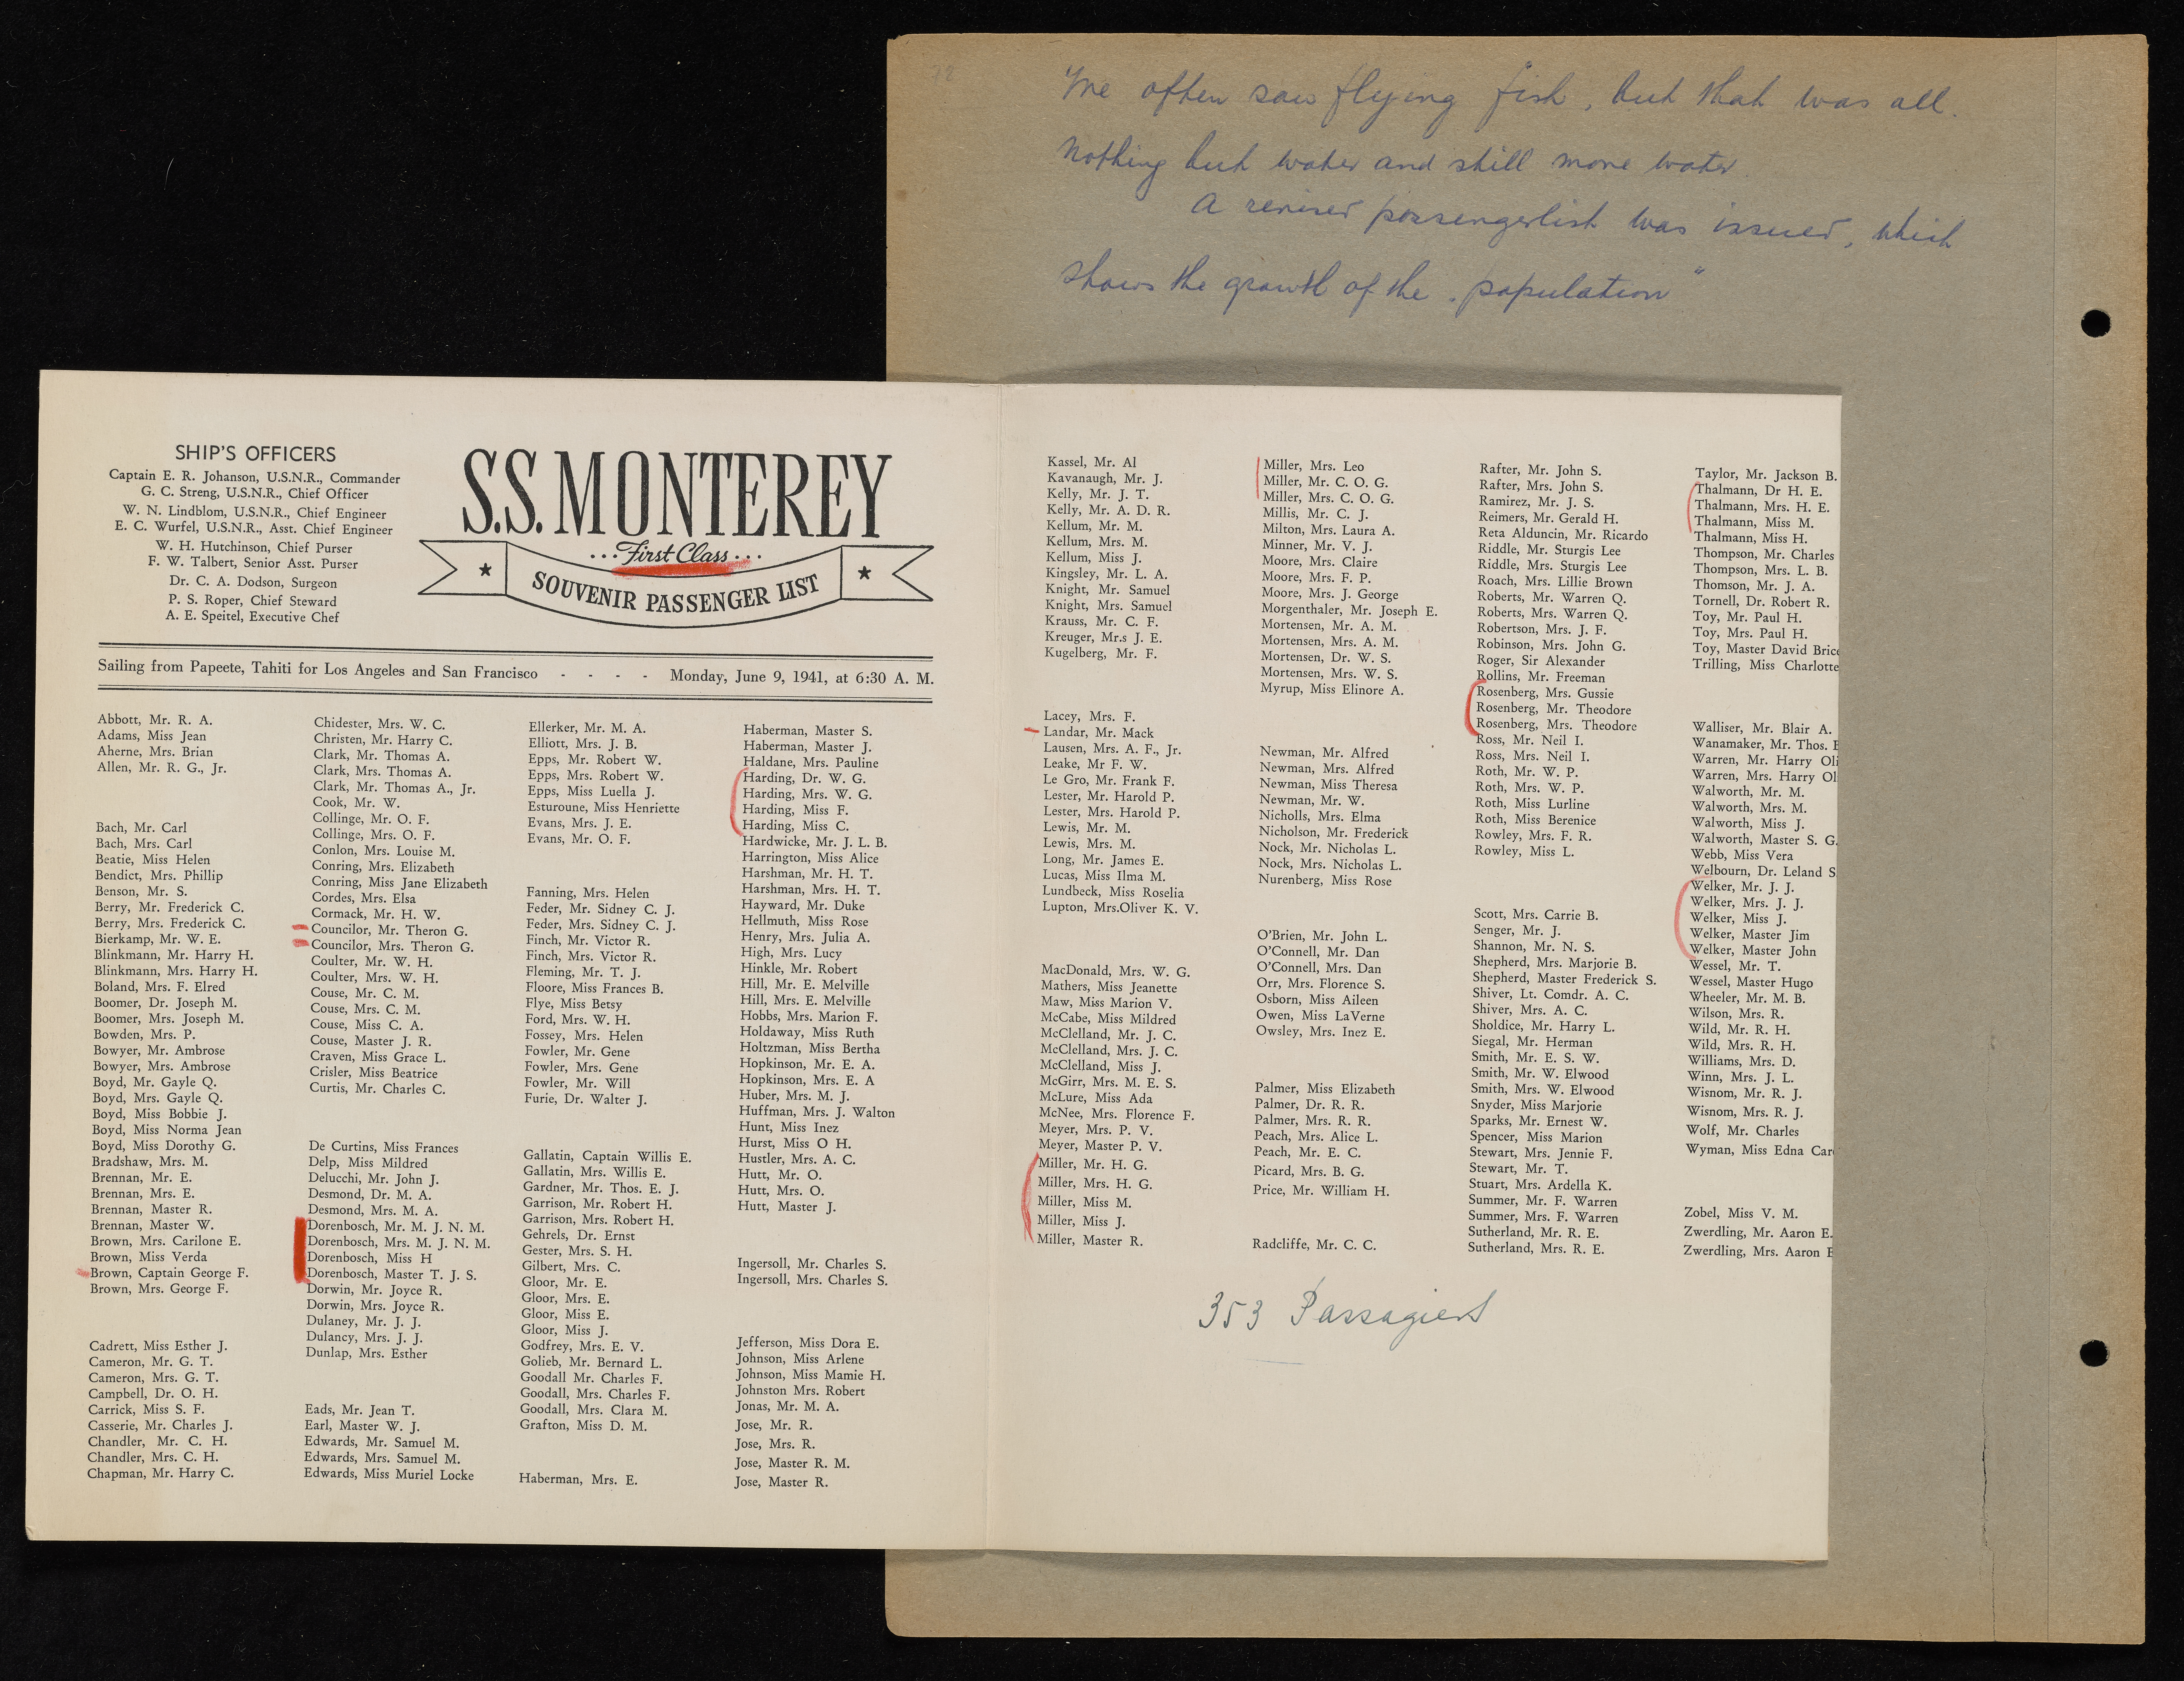 We often saw flying fish, but that was all.
Nothing but water and still more water
A revised passengerlist was issued, which
shows the growth of the "population"
SHIP'S OFFICERS
Captain E. R. Johanson, U.S.N.R., Commander
G. C. Streng, U.S.N.R., Chief Officer
W. N. Lindblom, U.S.N.R., Chief Engineer
E. C. Wurfel, U.S.N.R., Asst. Chief Engineer
W. H. Hutchinson, Chief Purser
F. W. Talbert, Senior Asst. Purser
Dr. C. A. Dodson, Surgeon
P. S. Roper, Chief Steward
A. E. Speitel, Executive Chef
S.S. MONTEREY
...First Class...
★ SOUVENIR PASSENGER LIST ★
Sailing from Papeete, Tahiti for Los Angeles and San Francisco - - - - Monday, June 9, 1941, at 6:30 A. M.
Abbott, Mr. R. A.
Adams, Miss Jean
Aherne, Mrs. Brian
Allen, Mr. R. G., Jr.
Bach, Mr. Carl
Bach, Mrs. Carl
Beatie, Miss Helen
Bendict, Mrs. Phillip
Benson, Mr. S.
Berry, Mr. Frederick C.
Berry, Mrs. Frederick C.
Bierkamp, Mr. W. E.
Blinkmann, Mr. Harry H.
Blinkmann, Mrs. Harry H.
Boland, Mrs. F. Elred
Boomer, Dr. Joseph M.
Boomer, Mrs. Joseph M.
Bowden, Mrs. P.
Bowyer, Mr. Ambrose
Bowyer, Mrs. Ambrose
Boyd, Mr. Gayle Q.
Boyd, Mrs. Gayle Q.
Boyd, Miss Bobbie J.
Boyd, Miss Norma Jean
Boyd, Miss Dorothy G.
Bradshaw, Mrs. M.
Brennan, Mr. E.
Brennan, Mrs. E.
Brennan, Master R.
Brennan, Master W.
Brown, Mrs. Carilone E.
Brown, Miss Verda
Brown, Captain George F.
Brown, Mrs. George F.
Cadrett, Miss Esther J.
Cameron, Mr. G. T.
Cameron, Mrs. G. T.
Campbell, Dr. O. H.
Carrick, Miss S. F.
Casserie, Mr. Charles J.
Chandler, Mr. C. H.
Chandler, Mrs. C. H.
Chapman, Mr. Harry C.
Chidester, Mrs. W. C.
Christen, Mr. Harry C.
Clark, Mr. Thomas A.
Clark, Mrs. Thomas A.
Clark, Mr. Thomas A., Jr.
Cook, Mr. W.
Collinge, Mr. O. F.
Collinge, Mrs. O. F.
Conlon, Mrs. Louise M.
Conring, Mrs. Elizabeth
Conring, Miss Jane Elizabeth
Cordes, Mrs. Elsa
Cormack, Mr. H. W.
Councilor, Mr. Theron G.
Councilor, Mrs. Theron G.
Coulter, Mr. W. H.
Coulter, Mrs. W. H.
Couse, Mr. C. M.
Couse, Mrs. C. M.
Couse, Miss C. A.
Couse, Master J. R.
Craven, Miss Grace L.
Crisler, Miss Beatrice
Curtis, Mr. Charles C.
De Curtins, Miss Frances
Delp, Miss Mildred
Delucchi, Mr. John J.
Desmond, Dr. M. A.
Desmond, Mrs. M. A.
Dorenbosch, Mr. M. J. N. M.
Dorenbosch, Mrs. M. J. N. M.
Dorenbosch, Miss H
Dorenbosch, Master T. J. S.
Dorwin, Mr. Joyce R.
Dorwin, Mrs. Joyce R.
Dulaney, Mr. J. J.
Dulancy, Mrs. J. J.
Dunlap, Mrs. Esther
Eads, Mr. Jean T.
Earl, Master W. J.
Edwards, Mr. Samuel M.
Edwards, Mrs. Samuel M.
Edwards, Miss Muriel Locke
Ellerker, Mr. M. A.
Elliott, Mrs. J. B.
Epps, Mr. Robert W.
Epps, Mrs. Robert W.
Epps, Miss Luella J.
Esturoune, Miss Henriette
Evans, Mrs. J. E.
Evans, Mr. O. F.
Fanning, Mrs. Helen
Feder, Mr. Sidney C. J.
Feder, Mrs. Sidney C. J.
Finch, Mr. Victor R.
Finch, Mrs. Victor R.
Fleming, Mr. T. J.
Floore, Miss Frances B.
Flye, Miss Betsy
Ford, Mrs. W. H.
Fossey, Mrs. Helen
Fowler, Mr. Gene
Fowler, Mrs. Gene
Fowler, Mr. Will
Furie, Dr. Walter J.
Gallatin, Captain Willis E.
Gallatin, Mrs. Willis E.
Gardner, Mr. Thos. E. J.
Garrison, Mr. Robert H.
Garrison, Mrs. Robert H.
Gehrels, Dr. Ernst
Gester, Mrs. S. H.
Gilbert, Mrs. C.
Gloor, Mr. E.
Gloor, Mrs. E.
Gloor, Miss E.
Gloor, Miss J.
Godfrey, Mrs. E. V.
Golieb, Mr. Bernard L.
Goodall Mr. Charles F.
Goodall, Mrs. Charles F.
Goodall, Mrs. Clara M.
Grafton, Miss D. M.
Haberman, Mrs. E.
Haberman, Master S.
Haberman, Master J.
Haldane, Mrs. Pauline
Harding, Dr. W. G.
Harding, Mrs. W. G.
Harding, Miss F.
Harding, Miss C.
Hardwicke, Mr. J. L. B.
Harrington, Miss Alice
Harshman, Mr. H. T.
Harshman, Mrs. H. T.
Hayward, Mr. Duke
Hellmuth, Miss Rose
Henry, Mrs. Julia A.
High, Mrs. Lucy
Hinkle, Mr. Robert
Hill, Mr. E. Melville
Hill, Mrs. E. Melville
Hobbs, Mrs. Marion F.
Holdaway, Miss Ruth
Holtzman, Miss Bertha
Hopkinson, Mr. E. A.
Hopkinson, Mrs. E. A
Huber, Mrs. M. J.
Huffman, Mrs. J. Walton
Hunt, Miss Inez
Hurst, Miss O H.
Hustler, Mrs. A. C.
Hutt, Mr. O.
Hutt, Mrs. O.
Hutt, Master J.
Ingersoll, Mr. Charles S.
Ingersoll, Mrs. Charles S.
Jefferson, Miss Dora E.
Johnson, Miss Arlene
Johnson, Miss Mamie H.
Johnston Mrs. Robert
Jonas, Mr. M. A.
Jose, Mr. R.
Jose, Mrs. R.
Jose, Master R. M.
Jose, Master R.
Kassel, Mr. Al
Kavanaugh, Mr. J.
Kelly, Mr. J. T.
Kelly, Mr. A. D. R.
Kellum, Mr. M.
Kellum, Mrs. M.
Kellum, Miss J.
Kingsley, Mr. L. A.
Knight, Mr. Samuel
Knight, Mrs. Samuel
Krauss, Mr. C. F.
Kreuger, Mr.s J. E.
Kugelberg, Mr. F.
Lacey, Mrs. F.
Landar, Mr. Mack
Lausen, Mrs. A. F., Jr.
Leake, Mr F. W.
Le Gro, Mr. Frank F.
Lester, Mr. Harold P.
Lester, Mrs. Harold P.
Lewis, Mr. M.
Lewis, Mrs. M.
Long, Mr. James E.
Lucas, Miss Ilma M.
Lundbeck, Miss Roselia
Lupton, Mrs.Oliver K. V.
MacDonald, Mrs. W. G.
Mathers, Miss Jeanette
Maw, Miss Marion V.
McCabe, Miss Mildred
McClelland, Mr. J. C.
McClelland, Mrs. J. C.
McClelland, Miss J.
McGirr, Mrs. M. E. S.
McLure, Miss Ada
McNee, Mrs. Florence F.
Meyer, Mrs. P. V.
Meyer, Master P. V.
Miller, Mr. H. G.
Miller, Mrs. H. G.
Miller, Miss M.
Miller, Miss J.
Miller, Master R.
Miller, Mrs. Leo
Miller, Mr. C. O. G.
Miller, Mrs. C. O. G.
Millis, Mr. C. J.
Milton, Mrs. Laura A.
Minner, Mr. V. J.
Moore, Mrs. Claire
Moore, Mrs. F. P.
Moore, Mrs. J. George
Morgenthaler, Mr. Joseph E.
Mortensen, Mr. A. M.
Mortensen, Mrs. A. M.
Mortensen, Dr. W. S.
Mortensen, Mrs. W. S.
Myrup, Miss Elinore A.
Newman, Mr. Alfred
Newman, Mrs. Alfred
Newman, Miss Theresa
Newman, Mr. W.
Nicholls, Mrs. Elma
Nicholson, Mr. Frederick
Nock, Mr. Nicholas L.
Nock, Mrs. Nicholas L.
Nurenberg, Miss Rose
O'Brien, Mr. John L.
O'Connell, Mr. Dan
O'Connell, Mrs. Dan
Orr, Mrs. Florence S.
Osborn, Miss Aileen
Owen, Miss LaVerne
Owsley, Mrs. Inez E.
Palmer, Miss Elizabeth
Palmer, Dr. R. R.
Palmer, Mrs. R. R.
Peach, Mrs. Alice L.
Peach, Mr. E. C.
Picard, Mrs. B. G.
Price, Mr. William H.
Radcliffe, Mr. C. C.
Rafter, Mr. John S.
Rafter, Mrs. John S.
Ramirez, Mr. J. S.
Reimers, Mr. Gerald H.
Reta Alduncin, Mr. Ricardo
Riddle, Mr. Sturgis Lee
Riddle, Mrs. Sturgis Lee
Roach, Mrs. Lillie Brown
Roberts, Mr. Warren Q.
Roberts, Mrs. Warren Q.
Robertson, Mrs. J. F.
Robinson, Mrs. John G.
Roger, Sir Alexander
Rollins, Mr. Freeman
Rosenberg, Mrs. Gussie
Rosenberg, Mr. Theodore
Rosenberg, Mrs. Theodore
Ross, Mr. Neil I.
Ross, Mrs. Neil I.
Roth, Mr. W. P.
Roth, Mrs. W. P.
Roth, Miss Lurline
Roth, Miss Berenice
Rowley, Mrs. F. R.
Rowley, Miss L.
Scott, Mrs. Carrie B.
Senger, Mr. J.
Shannon, Mr. N. S.
Shepherd, Mrs. Marjorie B.
Shepherd, Master Frederick S.
Shiver, Lt. Comdr. A. C.
Shiver, Mrs. A. C.
Sholdice, Mr. Harry L.
Siegal, Mr. Herman
Smith, Mr. E. S. W.
Smith, Mr. W. Elwood
Smith, Mrs. W. Elwood
Snyder, Miss Marjorie
Sparks, Mr. Ernest W.
Spencer, Miss Marion
Stewart, Mrs. Jennie F.
Stewart, Mr. T.
Stuart, Mrs. Ardella K.
Summer, Mr. F. Warren
Summer, Mrs. F. Warren
Sutherland, Mr. R. E.
Sutherland, Mrs. R. E.
Taylor, Mr. Jackson B.
Thalmann, Dr H. E.
Thalmann, Mrs. H. E.
Thalmann, Miss M.
Thalmann, Miss H.
Thompson, Mr. Charles
Thompson, Mrs. L. B.
Thomson, Mr. J. A.
Tornell, Dr. Robert R.
Toy, Mr. Paul H.
Toy, Mrs. Paul H.
Toy, Master David Bric
Trilling, Miss Charlotte
Walliser, Mr. Blair A.
Wanamaker, Mr. Thos.
Warren, Mr. Harry Oli
Warren, Mrs. Harry Ol
Walworth, Mr. M.
Walworth, Mrs. M.
Walworth, Miss J.
Walworth, Master S. G.
Webb, Miss Vera
Welbourn, Dr. Leland S
Welker, Mr. J. J.
Welker, Mrs. J. J.
Welker, Miss J.
Welker, Master Jim
Welker, Master John
Wessel, Mr. T.
Wessel, Master Hugo
Wheeler, Mr. M. B.
Wilson, Mrs. R.
Wild, Mr. R. H.
Wild, Mrs. R. H.
Williams, Mrs. D.
Winn, Mrs. J. L.
Wisnom, Mr. R. J.
Wisnom, Mrs. R. J.
Wolf, Mr. Charles
Wyman, Miss Edna Car
Zobel, Miss V. M.
Zwerdling, Mr. Aaron E.
Zwerdling, Mrs. Aaron E
353 Passagiers